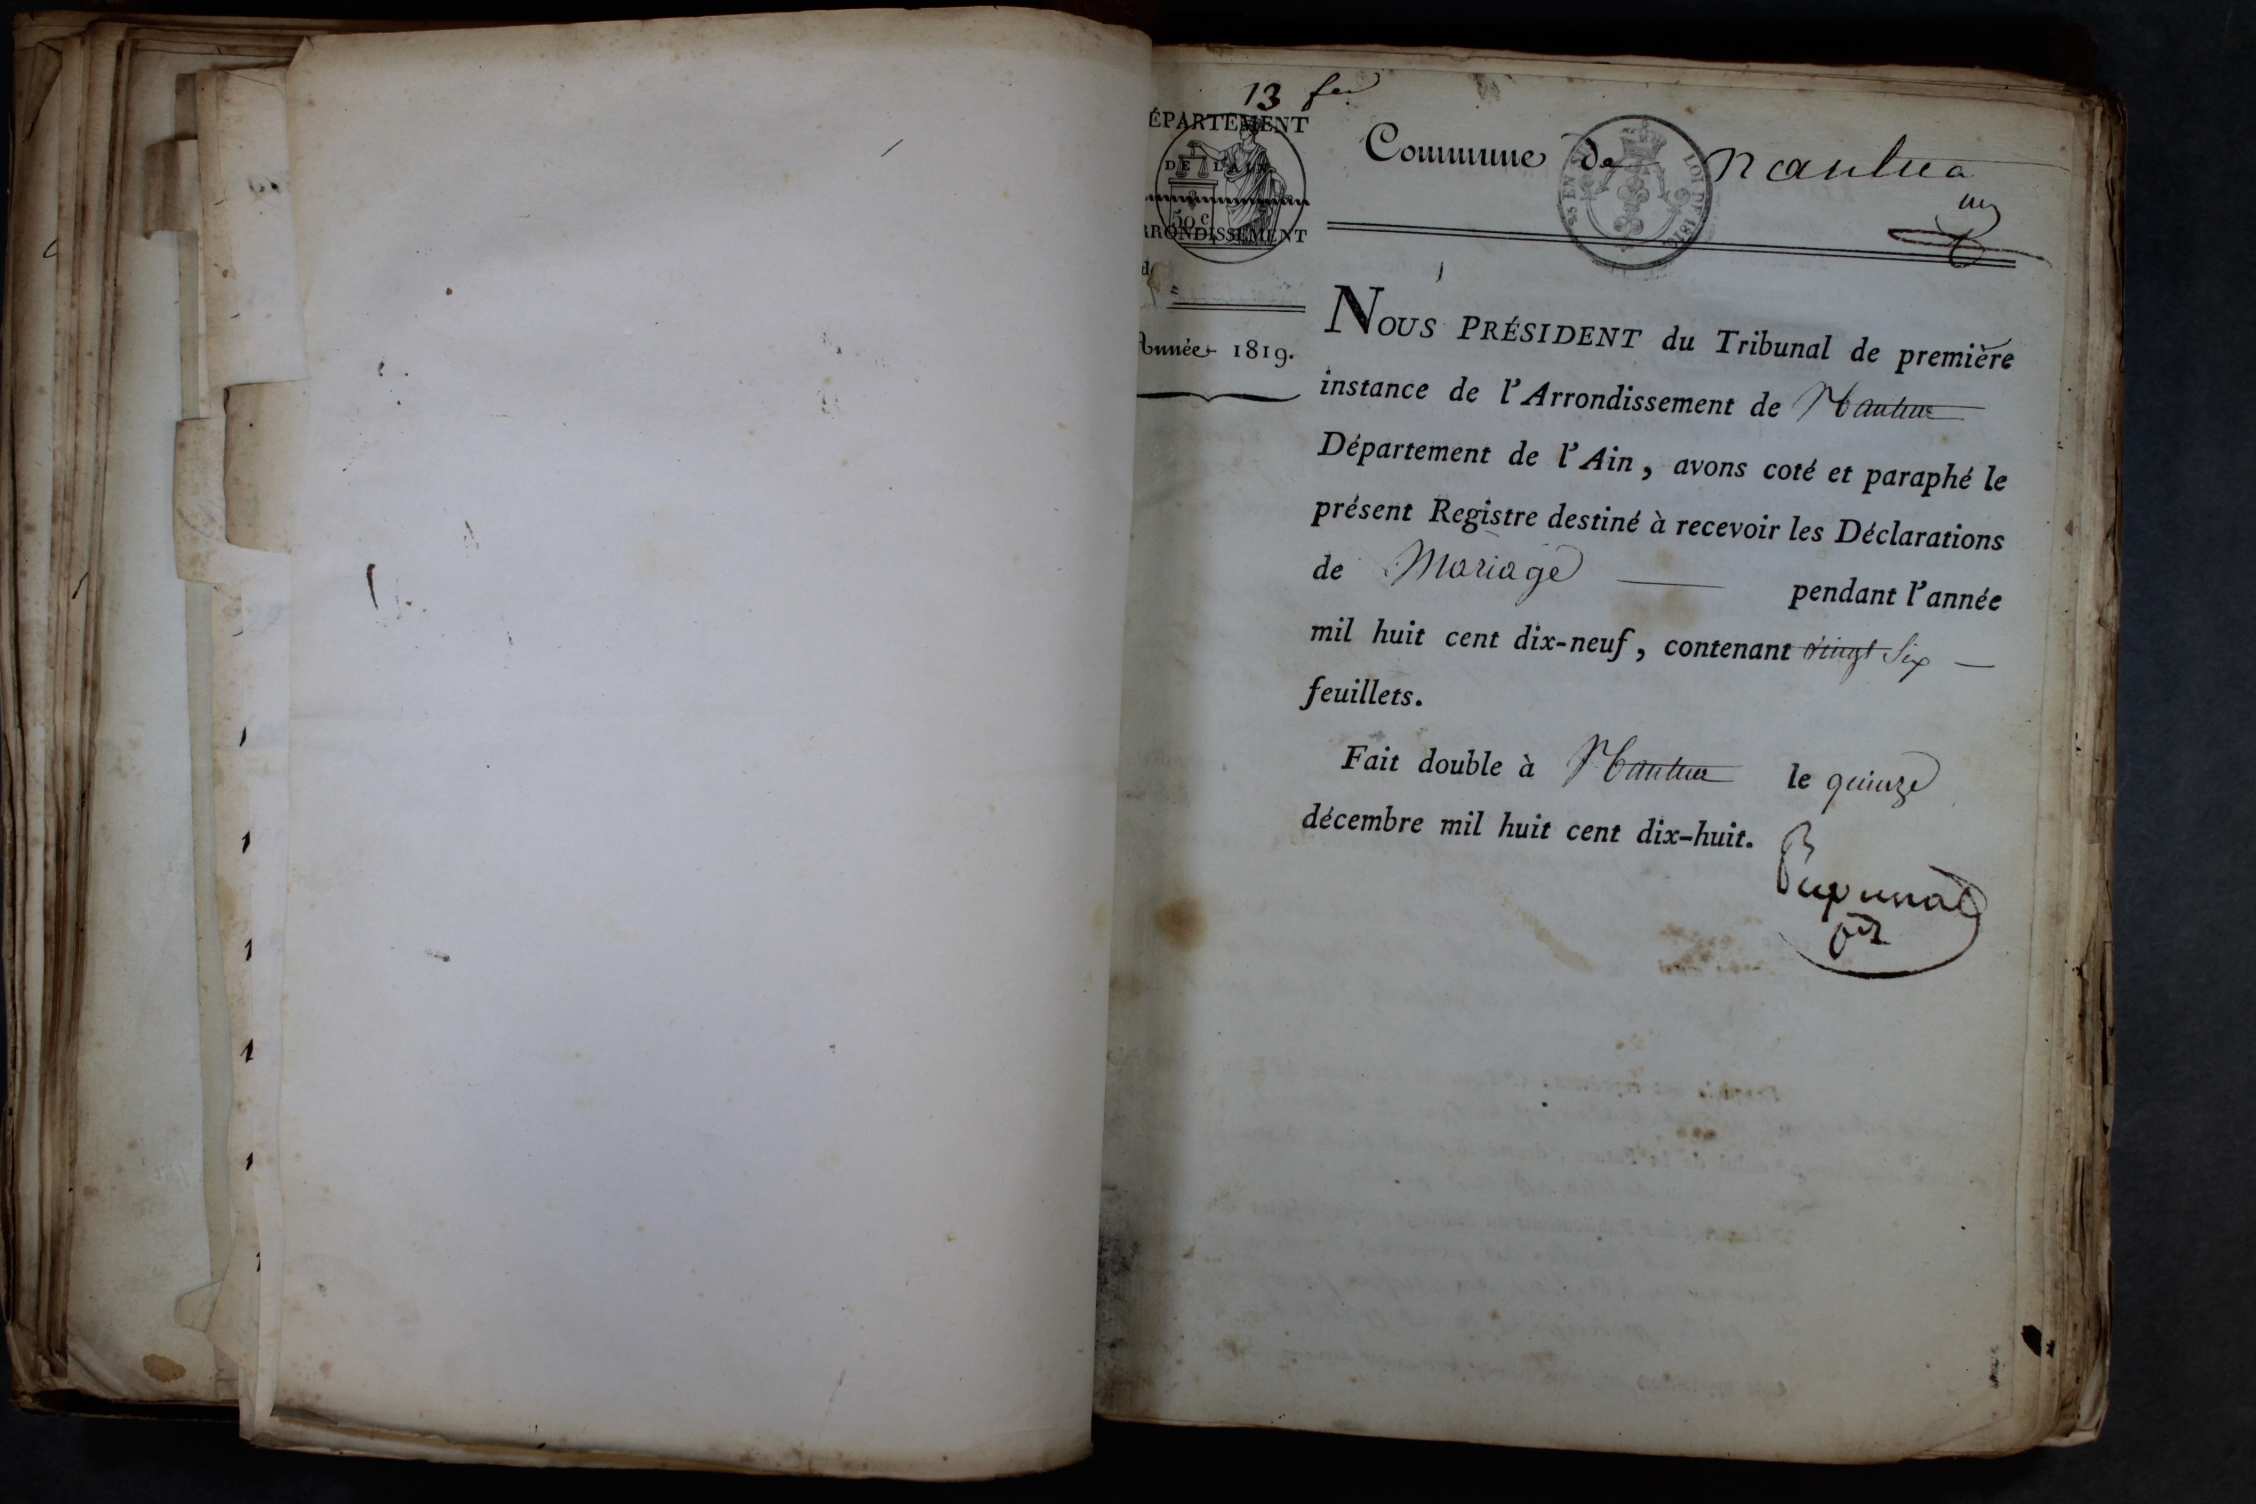 13 feu
ÉPARTEMENT
DE L'AIN
50 c.
RRONDISSEMENT
d
Année 1819.
Commune de nantua
LOI DE 1816
NOUS PRÉSIDENT du Tribunal de première
instance de l'Arrondissement de Nantua
Département de l'Ain, avons coté et paraphé le
présent Registre destiné à recevoir les Déclarations
de Mariage pendant l'année
mil huit cent dix-neuf, contenant vingt Six
feuillets.
Fait double à Nantua le quinze
décembre mil huit cent dix-huit.